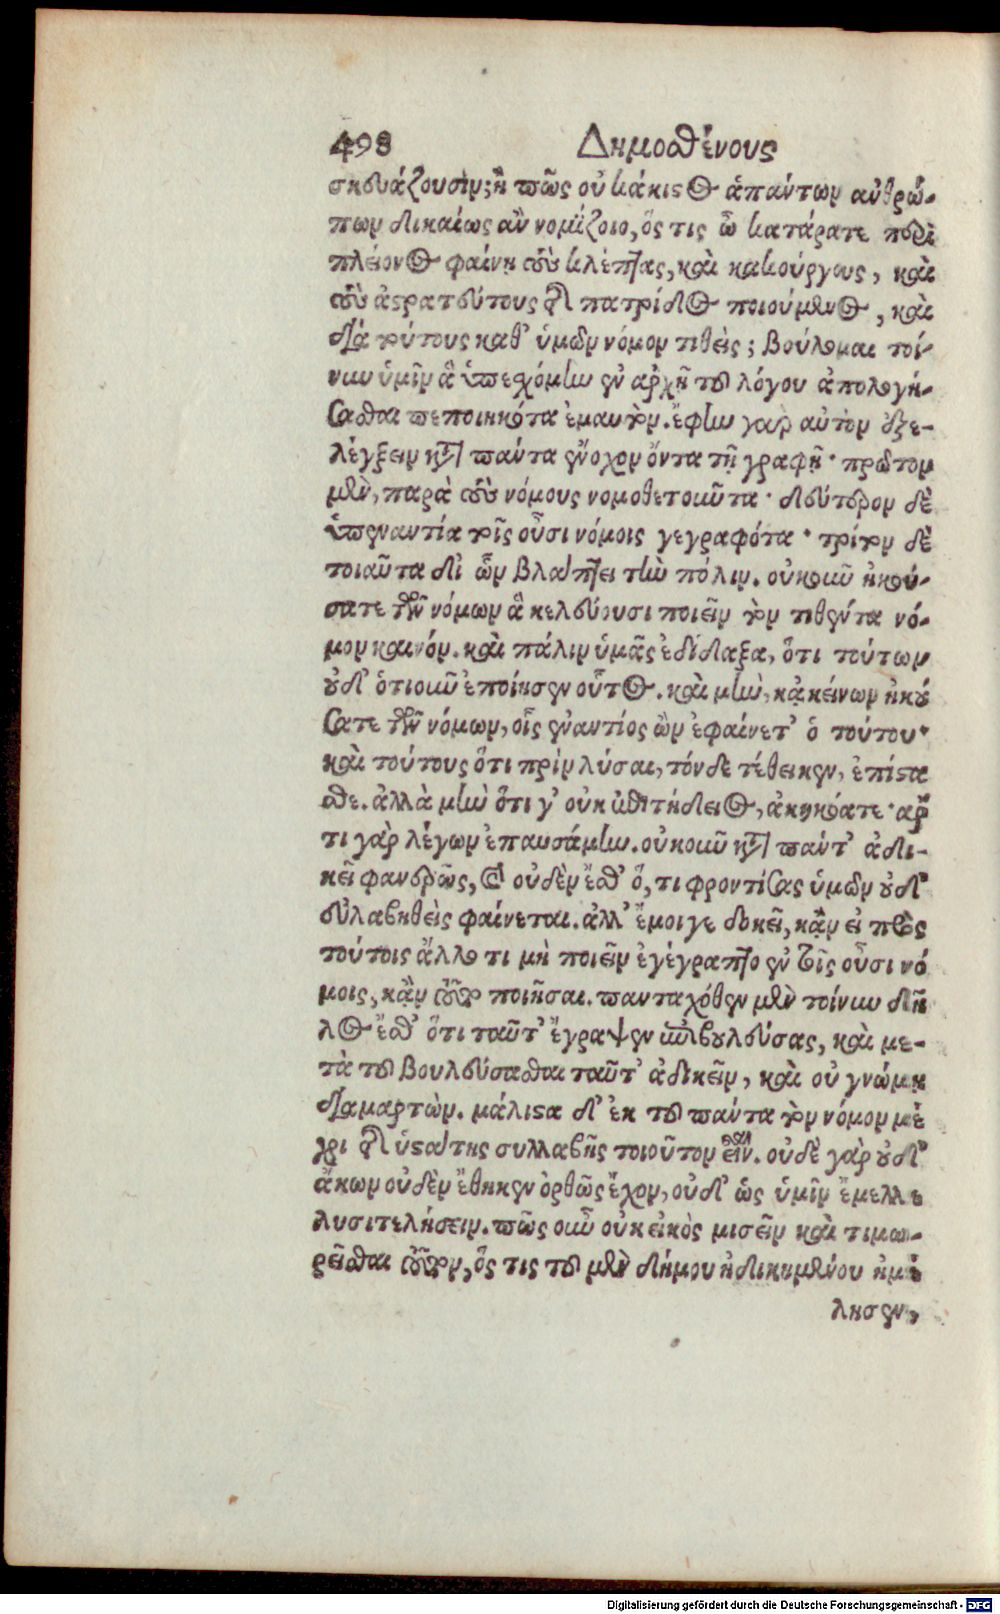 498 Δημοσθένους
σκευάζουσιν; ἢ πῶς οὐ κάκιστος ἁπάντων ἀνθρώ-
πων δικαίως ἂν νομίζοιο, ὅς τις ὦ κατάρατε περὶ
πλείονος φαίνῃ τοὺς κλέπτας, καὶ κακούργους, καὶ
τοὺς ἀστρατεύτους τῆς πατρίδος ποιούμενος, καὶ
διὰ τούτους καθ’ ὑμῶν νόμον τιθείς; βούλομαι τοί-
νυν ὑμῖν ἃ ὑπεσχόμην ἐν ἀρχῇ τοῦ λόγου ἀπολογή-
σασθαι πεποιηκότα ἐμαυτόν. ἔφην γὰρ αὐτὸν ἐξε-
λέγξειν κατὰ πάντα ἔνοχον ὄντα τῇ γραφῇ· πρῶτον
μὲν, παρὰ τοὺς νόμους νομοθετοῦντα· δεύτερον δὲ
ὑπεναντία τοῖς οὖσι νόμοις γεγραφότα· τρίτον δὲ
τοιαῦτα δι’ ὧν βλάπτει τὴν πόλιν. οὐκοῦν ἠκού-
σατε τῶν νόμων ἃ κελεύουσι ποιεῖν τὸν τιθέντα νό-
μον καινόν. καὶ πάλιν ὑμᾶς ἐδίδαξα, ὅτι τούτων
οὐδ’ ὁτιοῦν ἐποίησεν οὗτος. καὶ μὴν, κᾀκείνων ἠκού
σατε τῶν νόμων, οἷς ἐναντίος ὢν ἐφαίνετ’ ὁ τούτου·
καὶ τούτους ὅτι πρὶν λύσαι, τόνδε τέθεικεν, ἐπίστα
σθε. ἀλλὰ μὴν ὅτι γ’ οὐκ ἐπιτήδειος, ἀκηκόατε· ἄρ
τι γὰρ λέγων ἐπαυσάμην. οὐκοῦν κατὰ πάντ’ ἀδι-
κεῖ φανερῶς, καὶ οὐδὲν ἔσθ’ ὅ, τι φροντίσας ὑμῶν οὐδ’
εὐλαβηθεὶς φαίνεται. ἀλλ’ ἔμοιγε δοκεῖ, κᾂν εἰ πρὸς
τούτοις ἄλλο τι μὴ ποιεῖν ἐγέγραπτο ἐν τοῖς οὖσι νό
μοις, κᾂν τοῦτο ποιῆσαι. πανταχόθεν μὲν τοίνυν δῆ
λος ἔσθ’ ὅτι ταῦτ’ ἔγραψεν ἐπιβουλεύσας, καὶ με-
τὰ τοῦ βουλεύσασθαι ταῦτ’ ἀδικεῖν, καὶ οὐ γνώμῃ
διαμαρτών. μάλιστα δ’ ἐκ τοῦ πάντα τὸν νόμον μέ
χρι τῆς ὑστάτης συλλαβῆς τοιοῦτον εἶναι. οὐδὲ γὰρ οὐδ’
ἄκων οὐδὲν ἔθηκεν ὀρθῶς ἔχον, οὐδ’ ὡς ὑμῖν ἔμελλε
λυσιτελήσειν. πῶς οὖν οὐκ εἰκὸς μισεῖν καὶ τιμω-
ρεῖσθαι τοῦτον, ὅς τις τοῦ μὲν δήμου ἠδικημένου ἠμέ
λησεν,
Digitalisierung gefördert durch die Deutsche Forschungsgemeinschaft - DFG